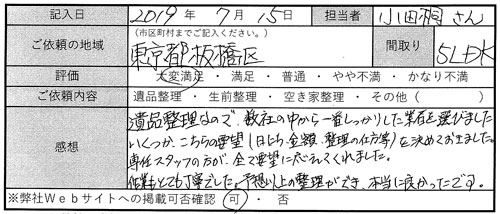 記入日 2019年 7月 15日 担当者 小田桐さん
ご依頼の地域 (市区町村までご記入ください。) 東京都板橋区 間取り 5LDK
評価 大変満足 ・ 満足 ・ 普通 ・ やや不満 ・ かなり不満
ご依頼内容 遺品整理 ・ 生前整理 ・ 空き家整理 ・ その他 ( )
感想
遺品整理なので、数社の中から一番しっかりした業者を選びました
いくつか、こちらの要望(日にち、金額、整理の仕方等)を決めておきました。
専任スタッフの方が、全て要望に応えてくれました。
作業もとても丁寧でした。予想以上の整理ができ、本当に良かったです。
※弊社Webサイトへの掲載可否確認 可 ・ 否